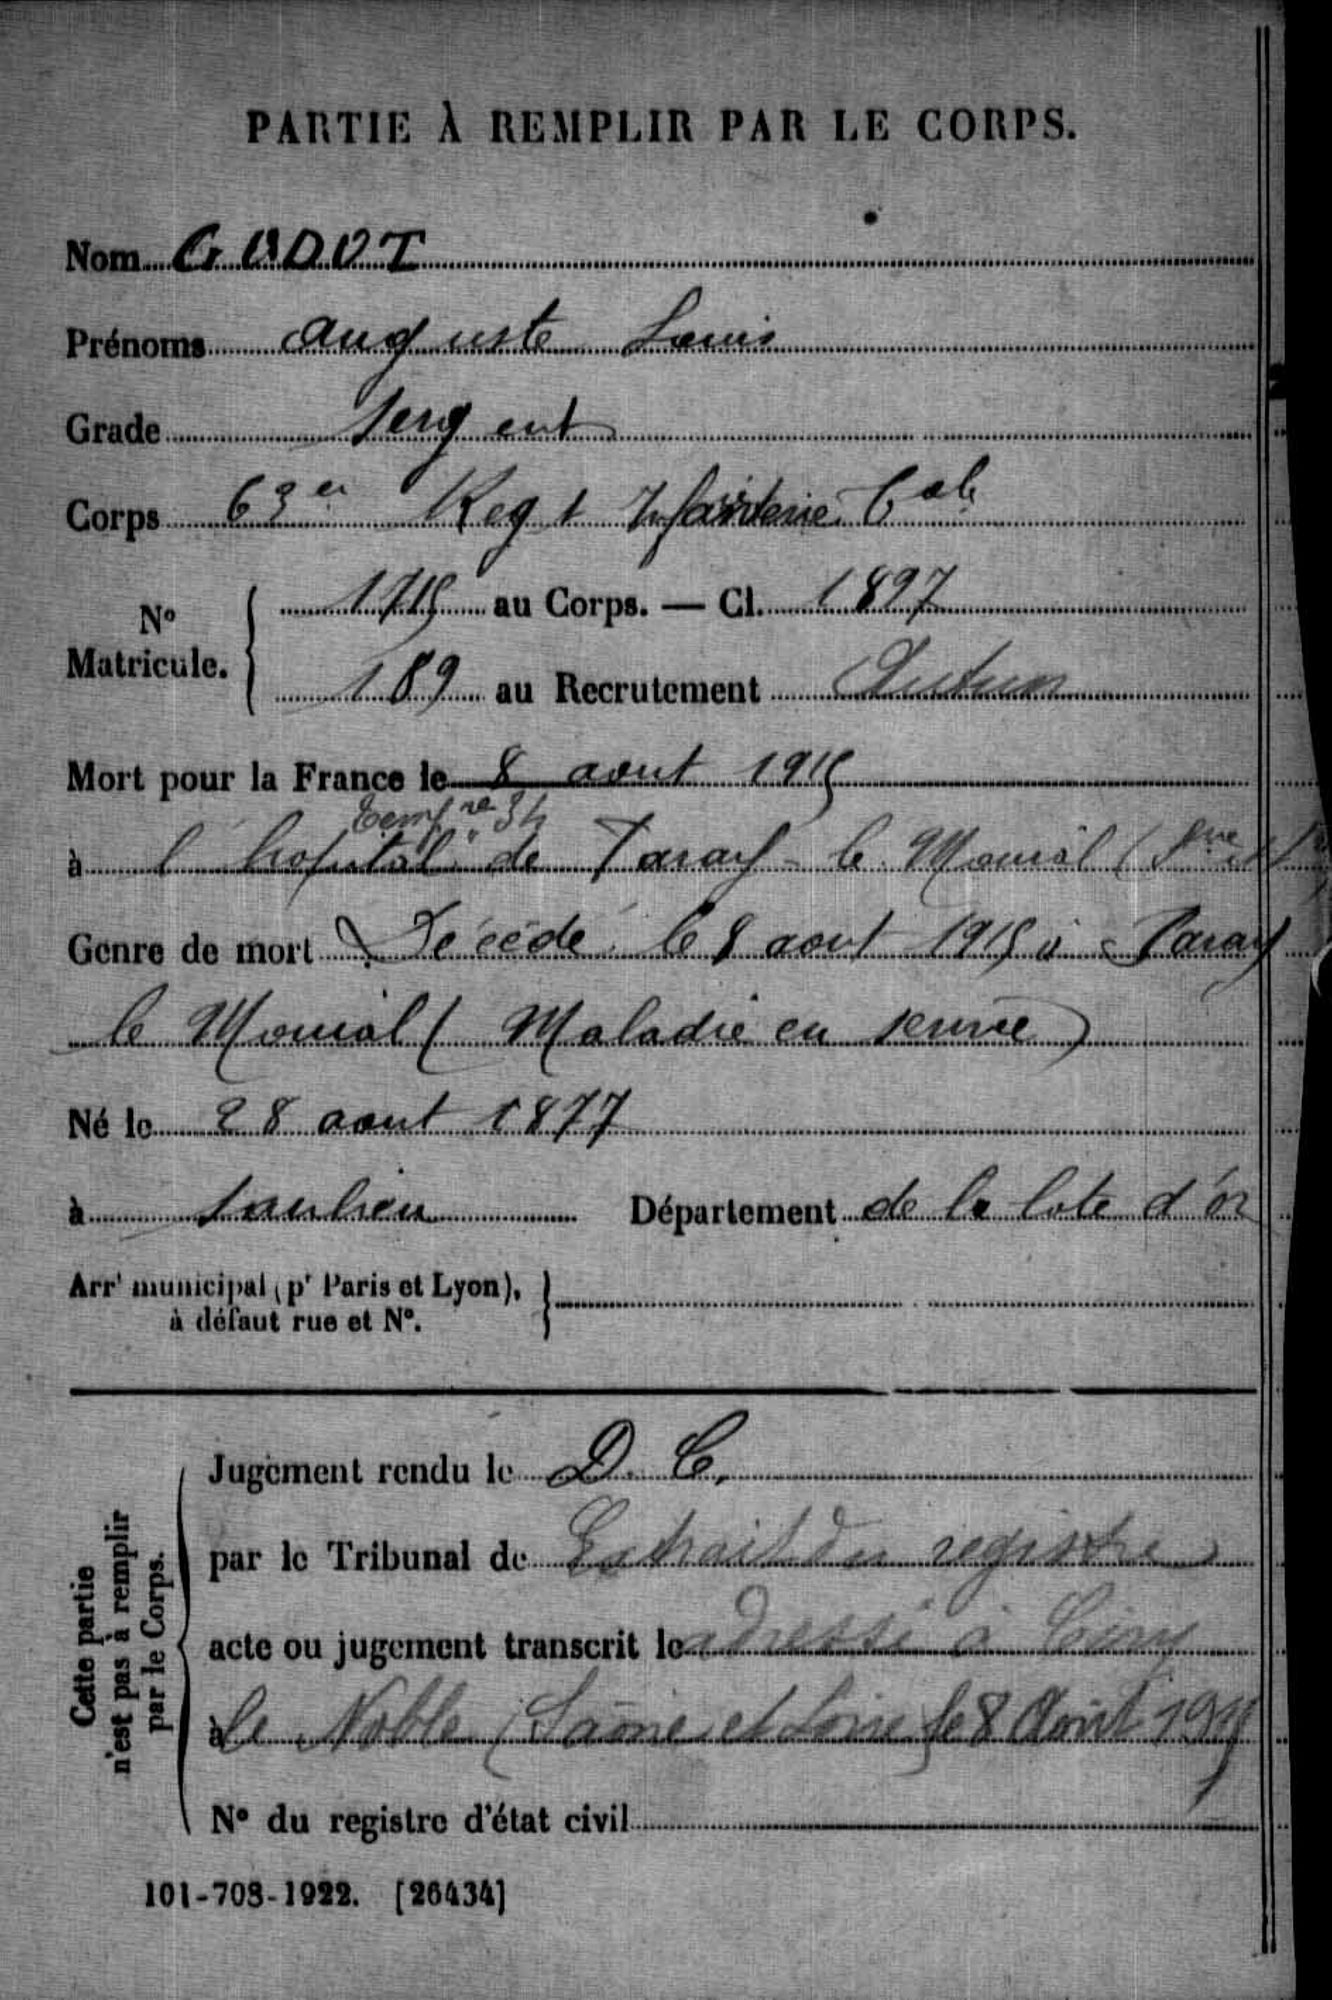 PARTIE À REMPLIR PAR LE CORPS.
Nom GUDOT
Prénoms Auguste Louis
Grade Sergent
Corps 63er Regt Infanterie Cale
No Matricule. 1715 au Corps. — Cl. 1897
189 au Recrutement Autun
Mort pour la France le 8 aout 1915
Tempre 34
à l'hopital de Paray-le Monial (
Genre de mort Décédé le 8 aout 1915 à Paray
le Monial (Maladie en service)
Né le 28 aout 1877
à Saulieu Département de la Cote d'or
Arrt municipal (pr Paris et Lyon),
à défaut rue et No.
Cette partie
n'est pas à remplir
par le Corps.
Jugement rendu le D. C.
par le Tribunal de Extrait du registre
acte ou jugement transcrit le adressé à Ciry
à le Noble (Saône et Loire) le 8 Août 1915
No du registre d'état civil
101-708-1922. [26434]